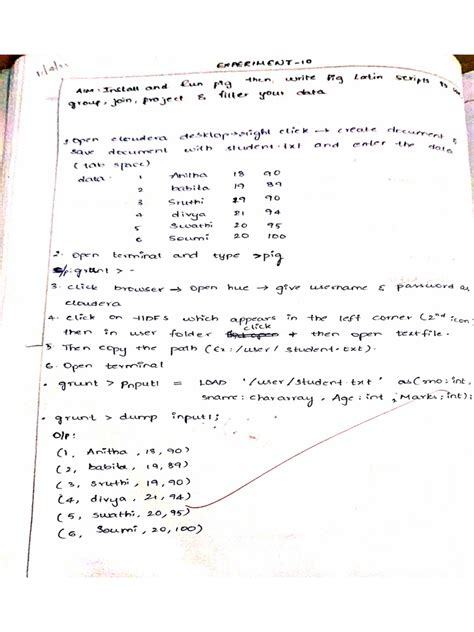 EXPERIMENT-10
AIM: Install and Run pig then write Pig Latin scripts to
group, join, project & filter your data
1. Open cloudera desktop → right click → create document &
save document with student.txt and enter the data
(tab space)
data: 1 Anitha 18 90
2 babila 19 89
3 Sruthi 19 90
4 divya 21 94
5 Swathi 20 95
6 Soumi 20 100
2. Open terminal and type >pig
o/p: grunt > -
3. click browser → open hue → give username & password as
cloudera
4. click on HDFS which appears in the left corner (2nd icon)
then in user folder click + then open textfile.
5 Then copy the path (Ex: /user/student.txt).
6. Open terminal
• grunt > Input1 = LOAD '/user/student.txt' as(rno:int,
sname: chararray, Age: int, Marks: int);
• grunt > dump input1;
O/p:
(1, Anitha, 18, 90)
(2, babila, 19, 89)
(3, sruthi, 19, 90)
(4, divya, 21, 94)
(5, swathi, 20, 95)
(6, Soumi, 20, 100)